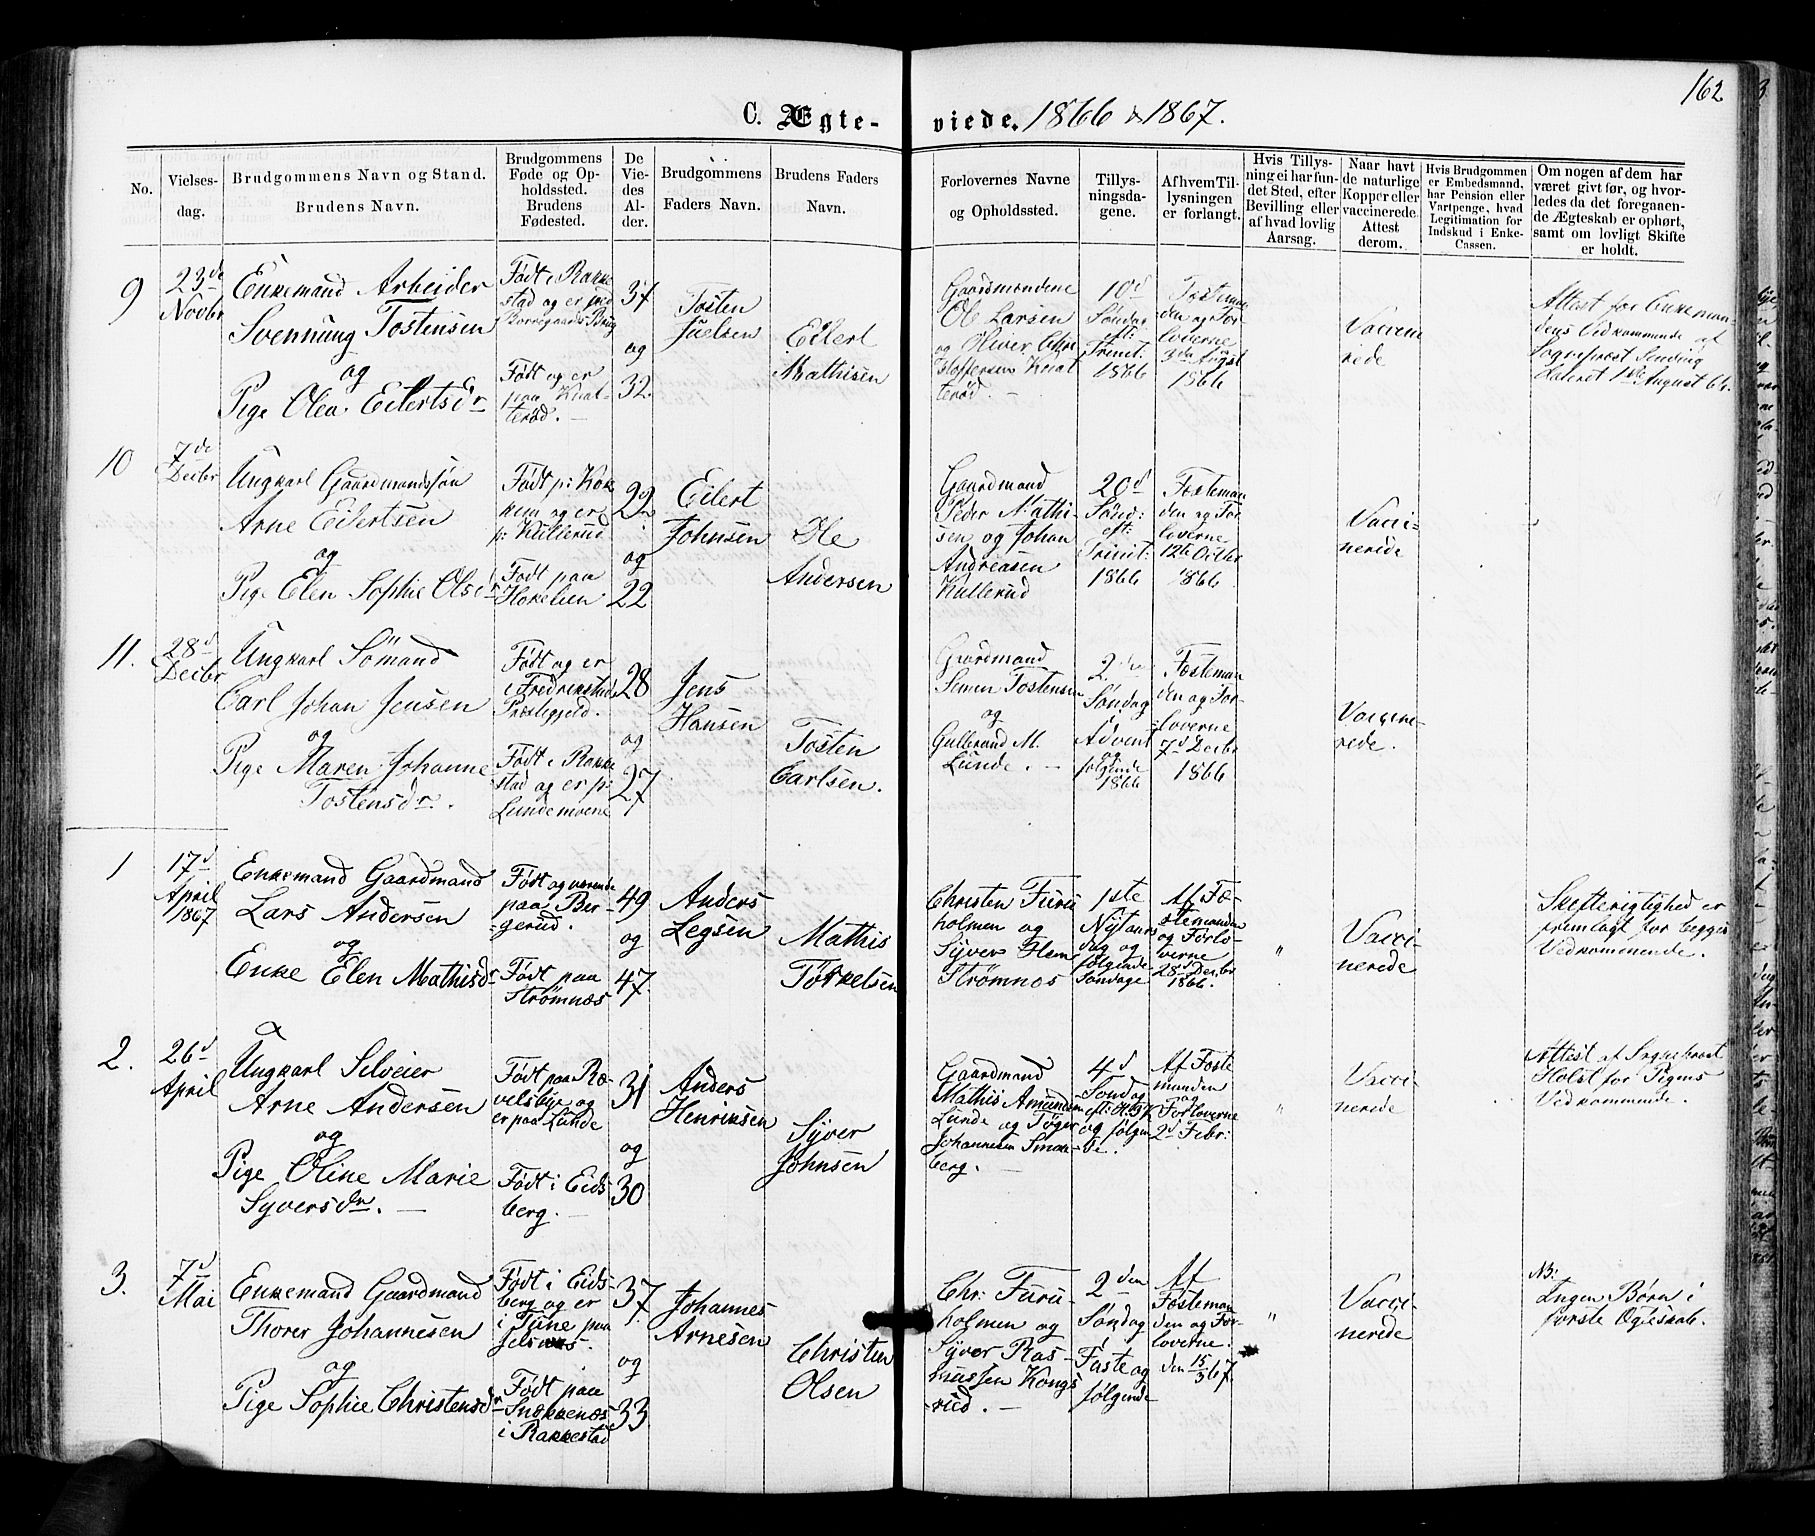 162
C. Ægte- viede. 1866 & 1867.
No.
Vielses-
dag.
Brudgommens Navn og Stand.
Brudens Navn.
Brudgommens
Føde og Op-
holdssted.
Brudens
Fødested.
De
Vie-
des
Al-
der.
Brudgommens
Faders Navn.
Brudens Faders
Navn.
Forlovernes Navne
og Opholdssted.
Tillys-
ningsda-
gene.
Af hvem Til-
lysningen
er forlangt.
Hvis Tillys-
ning ei har fun-
det Sted, efter
Bevilling eller
af hvad lovlig
Aarsag.
Naar havt
de naturlige
Kopper eller
vaccinerede.
Attest
derom.
Hvis Brudgommen
er Embedsmand,
har Pension eller
Vartpenge, hvad
Legitimation for
Indskud i Enke-
Cassen.
Om nogen af dem har
været givt før, og hvor-
ledes da det foregaaen-
de Ægteskab er ophørt,
samt om lovligt Skifte
er holdt.
9
23de
Novbr
Enkemand Arbeider
Svennung Tostensen
og
Pige Olea Eilertsdr
Født i Rakke
stad og er ved
Borregaards Brug
Født og er
paa Knat-
terød. —
37
og
32
Tosten
Juelsen
Eilert
Mathisen
Gaardmændene
Ole Larsen
og Oliver Chri
stoffersen Knat
terød. —
10d
Søndag
eft:
Trinit:
1866
Festeman
den og For-
loverne
3de August
1866
Vaccine
rede
Attest for Enkeman-
dens Vedkommende af
Sogneprest Sending
dateret 1ste August 66.
10
7de
Decbr
Ungkarl Gaardmandssøn
Arne Eilertsen
og
Pige Elen Sophie Olsdr
Født p: Kok
kim og er
p: Kullerud
Født paa
Hokelien
22
og
22
Eilert
Johnsen
Ole
Andersen
Gaardmand
Peder Mathi-
sen og Johan
Andreasen
Kullerud
20d
Sønd:
eft:
Trinit:
1866
Festeman
den og For
loverne
12te Octbr
1866
Vacci-
nerede
11.
28d
Decbr
Ungkarl Sömand
Carl Johan Jensen
og
Pige Maren Johanne
Tostensdr.
Født og er
i Fredrikstads
Præstegjeld.
Født i Rakke
stad og er p:
Lundemoene
28
og
27
Jens
Hansen
Tosten
Carlsen.
Gaardmand
Simen Tostensen
og
Gulbrand M.
Lunde. —
2den
Søndag
Advent
og
følgende
1866
Festeman
den og For-
loverne
7d Decbr
1866
Vaccine-
rede.
1
17d
April
1867
Enkemand Gaardmand
Lars Andersen
og
Enke Elen Mathisdr
Født og værende
paa Ber-
gerud.
Født paa
Strømnæs
49
og
47.
Anders
Legsen
Mathis
Torkelsen
Christen Furu
holmen og
Syver Hem
Strømnos
1ste
Nytaars
dag og
følgende
Søndage
Af Fæ-
stemanden
og Forlo-
verne
28d Decbr
1866.
"
Vacci-
nerede
Skifterigtighed er
fremlagt for begges
Vedkommende.
2.
26d
April
Ungkarl Selveier
Arne Andersen
og
Pige Oline Marie
Syversdr. —
Født paa Ræ
velsbye og
er paa Lunde
Født i Eids
berg. —
31
og
30
Anders
Henriksen
Syver
Johnsen
Gaardmand
Mathis Amundsen
Lunde og Töger
Johannesen Smaa-
berg. —
4d
Søndag
eft: H3K
og følgen
de.
Af Feste
manden
og
Forloverne
2d Febr:
"
Vacci-
nerede
Attest af Sogneprest
Holst for Pigens
Vedkommende.
3.
7d
Mai
Enkemand Gaardmand
Thorer Johannesen
og
Pige Sophie Christensdr
Født i Eids-
berg og er
i Tune paa
Jelsnæs.
Født paa
Snekkenæs
i Rakkestad
37
og
33
Johannes
Arnesen
Christen
Olsen
Chr: Furu-
holmen og
Syver Ras-
mussen Kongs
rud. —
2den
Søndag
i
Faste og
følgende
Af
Festeman
den og For-
loverne
den 15/3 67.
"
Vacci-
nerede
NB:
Ingen Børn i
første Ægteskab.